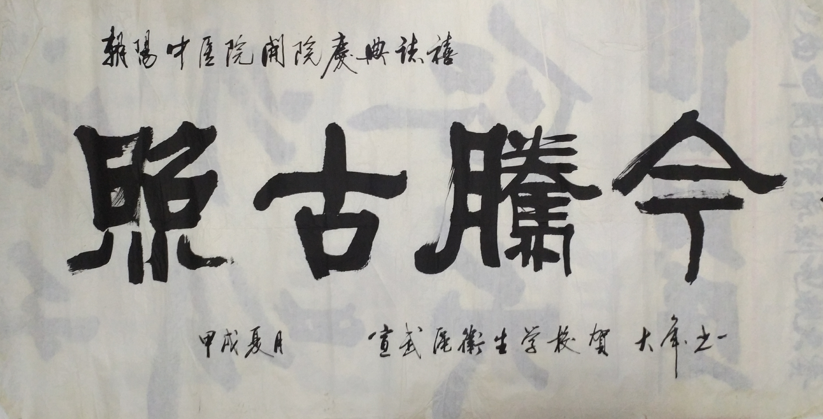 朝陽中医院開院慶典誌禧
照古騰今
甲戌夏月 宣武区衛生学校賀 大年书